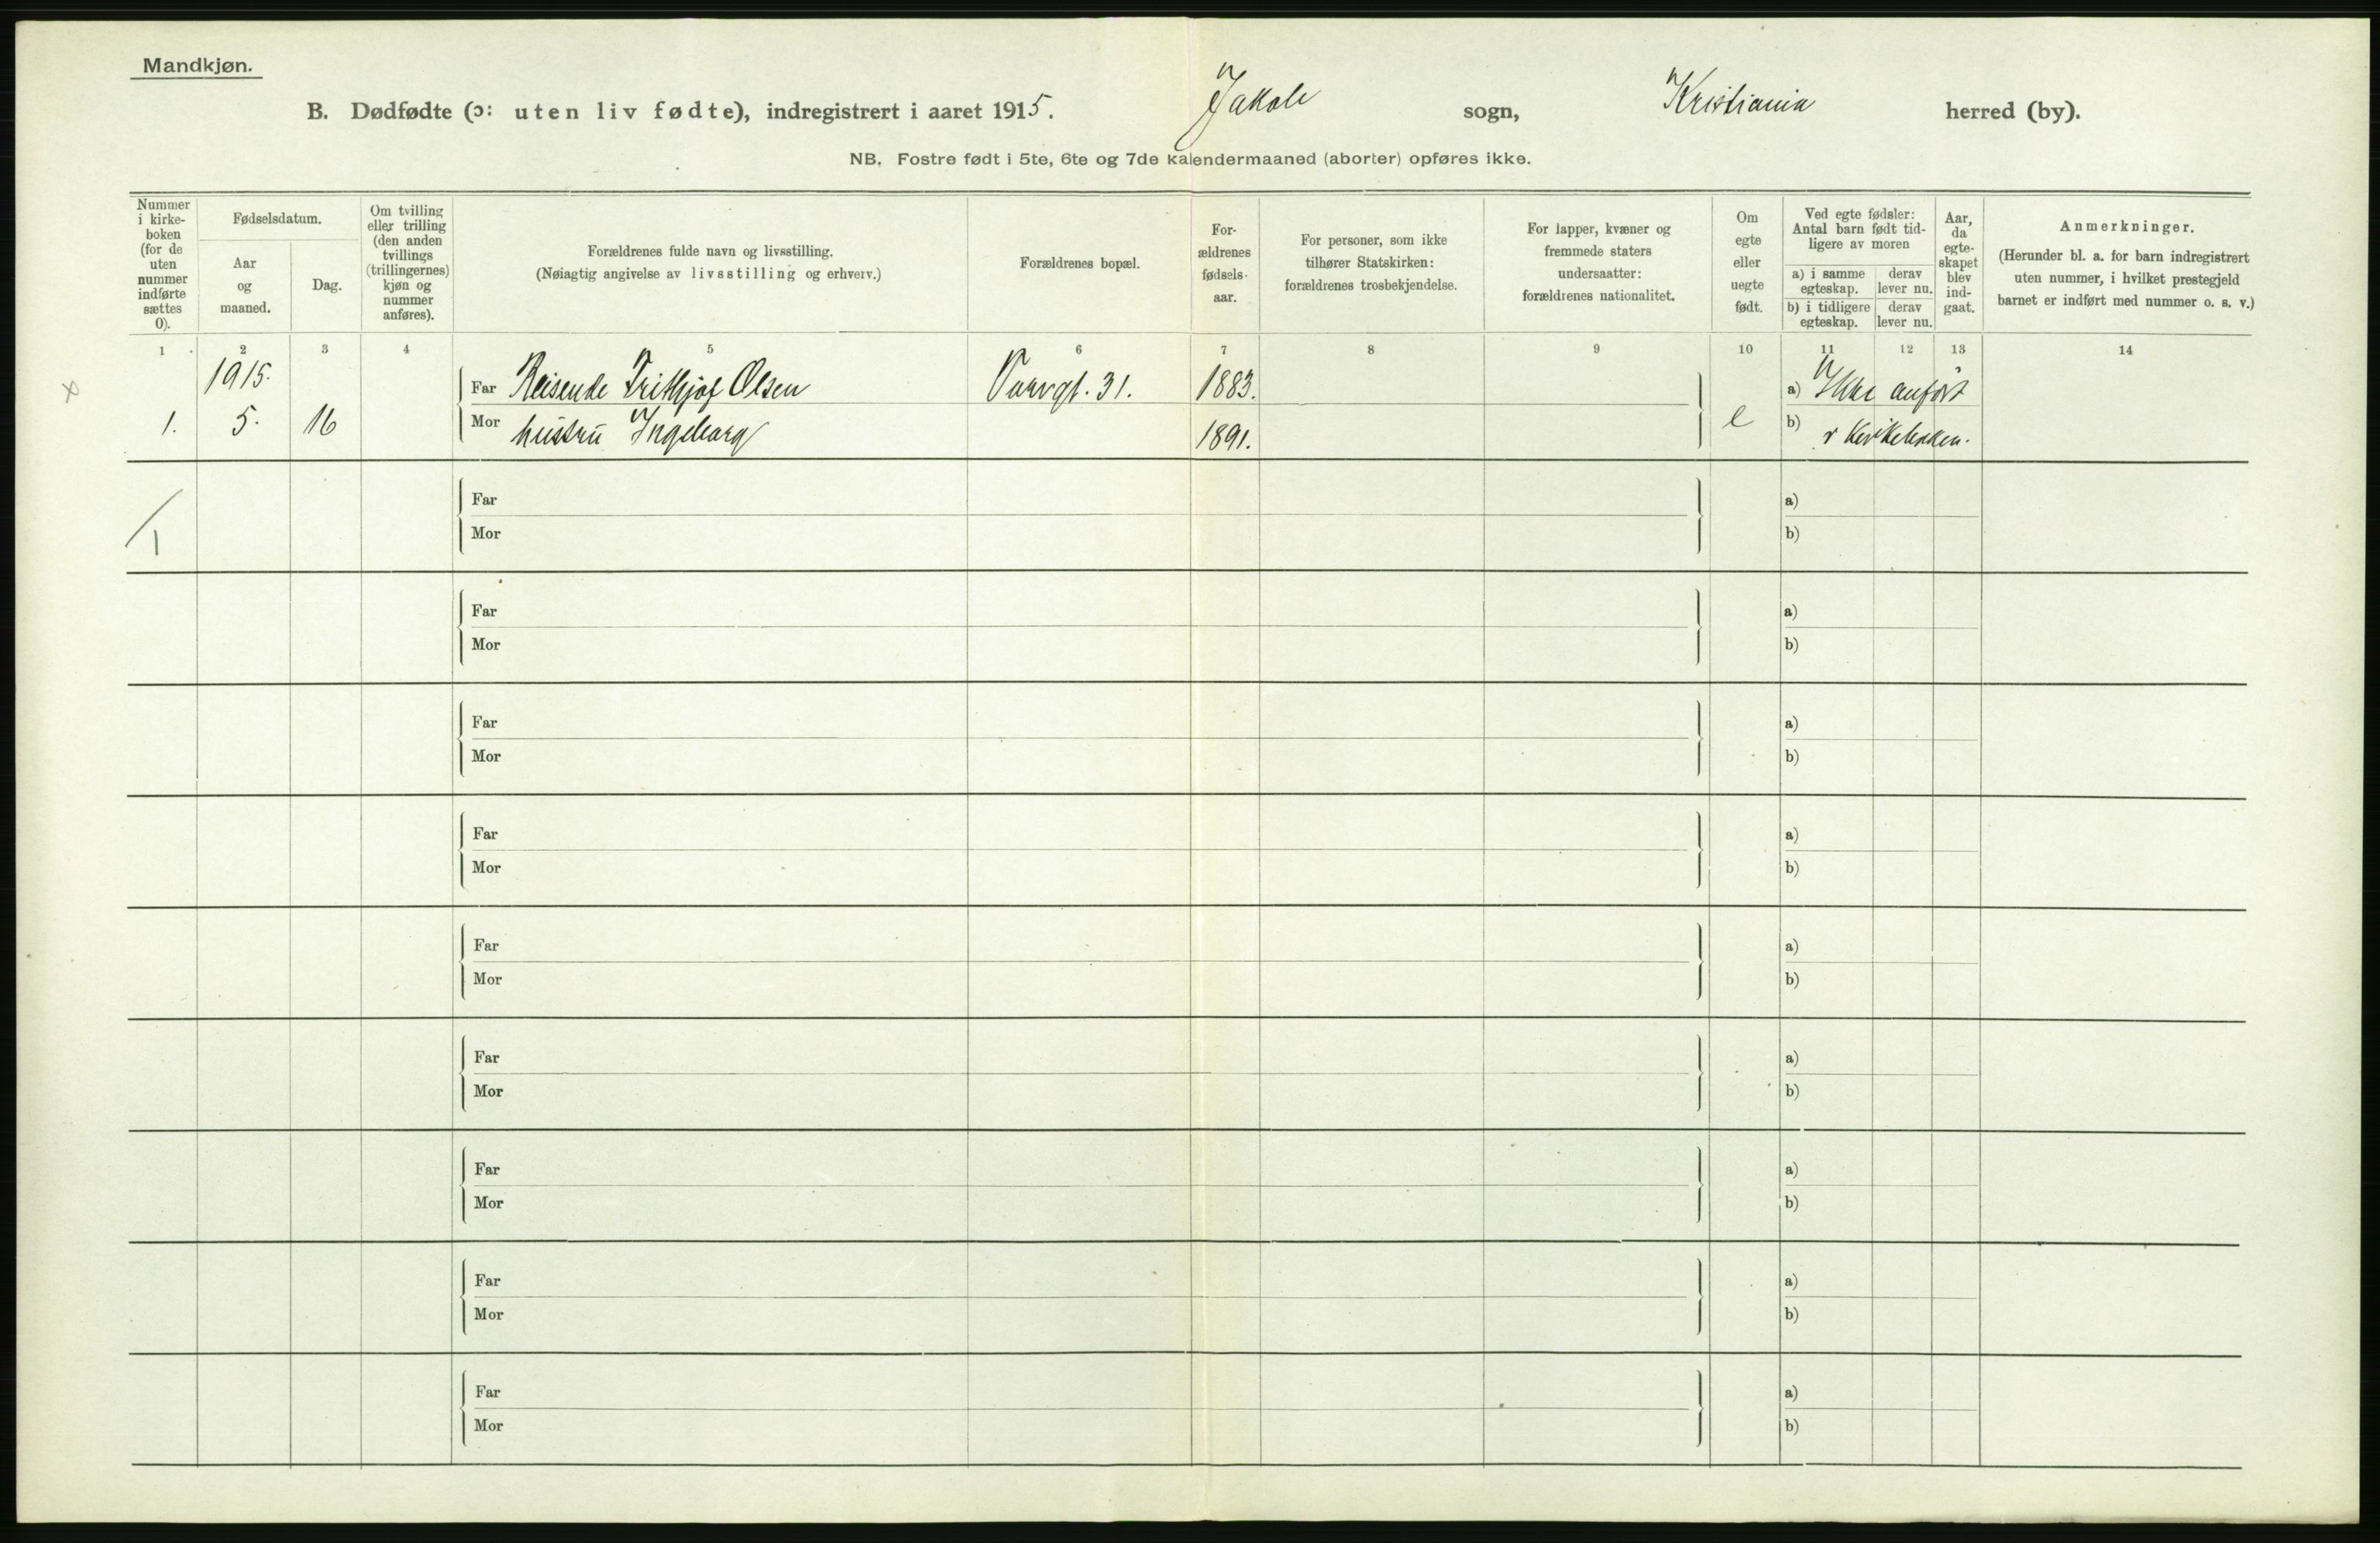 Mandkjøn.
B. Dødfødte (ɔ: uten liv fødte), indregistrert i aaret 1915. Jakob sogn, Kristiania herred (by).
NB. Fostre født i 5te, 6te og 7de kalendermaaned (aborter) opføres ikke.
Nummer i kirke- boken (for de uten nummer indførte sættes 0).
Fødselsdatum.
Aar og maaned.
Dag.
Om tvilling eller trilling (den anden tvillings (trillingernes) kjøn og nummer anføres).
Forældrenes fulde navn og livsstilling.
(Nøiagtig angivelse av livsstilling og erhverv.)
Forældrenes bopæl.
For- ældrenes fødsels- aar.
For personer, som ikke tilhører Statskirken: forældrenes trosbekjendelse.
For lapper, kvæner og fremmede staters undersaatter: forældrenes nationalitet.
Om egte eller uegte født.
Ved egte fødsler: Antal barn født tid- ligere av moren
a) i samme egteskap.
derav lever nu.
b) i tidligere egteskap.
derav lever nu.
Aar, da egte- skapet blev ind- gaat.
Anmerkninger.
(Herunder bl. a. for barn indregistrert uten nummer, i hvilket prestegjeld barnet er indført med nummer o. s. v.)
1 2 3 4 5 6 7 8 9 10 11 12 13 14
x
1915.
Far Reisende Frithjof Olsen
31. 1883.
a) Ikke anført
1. 5. 16
Mor hustru Ingeborg
1891. e
b) i kirkeboken.
1
Far a)
Mor b)
Far a)
Mor b)
Far a)
Mor b)
Far a)
Mor b)
Far a)
Mor b)
Far a)
Mor b)
Far a)
Mor b)
Far a)
Mor b)
Far a)
Mor b)